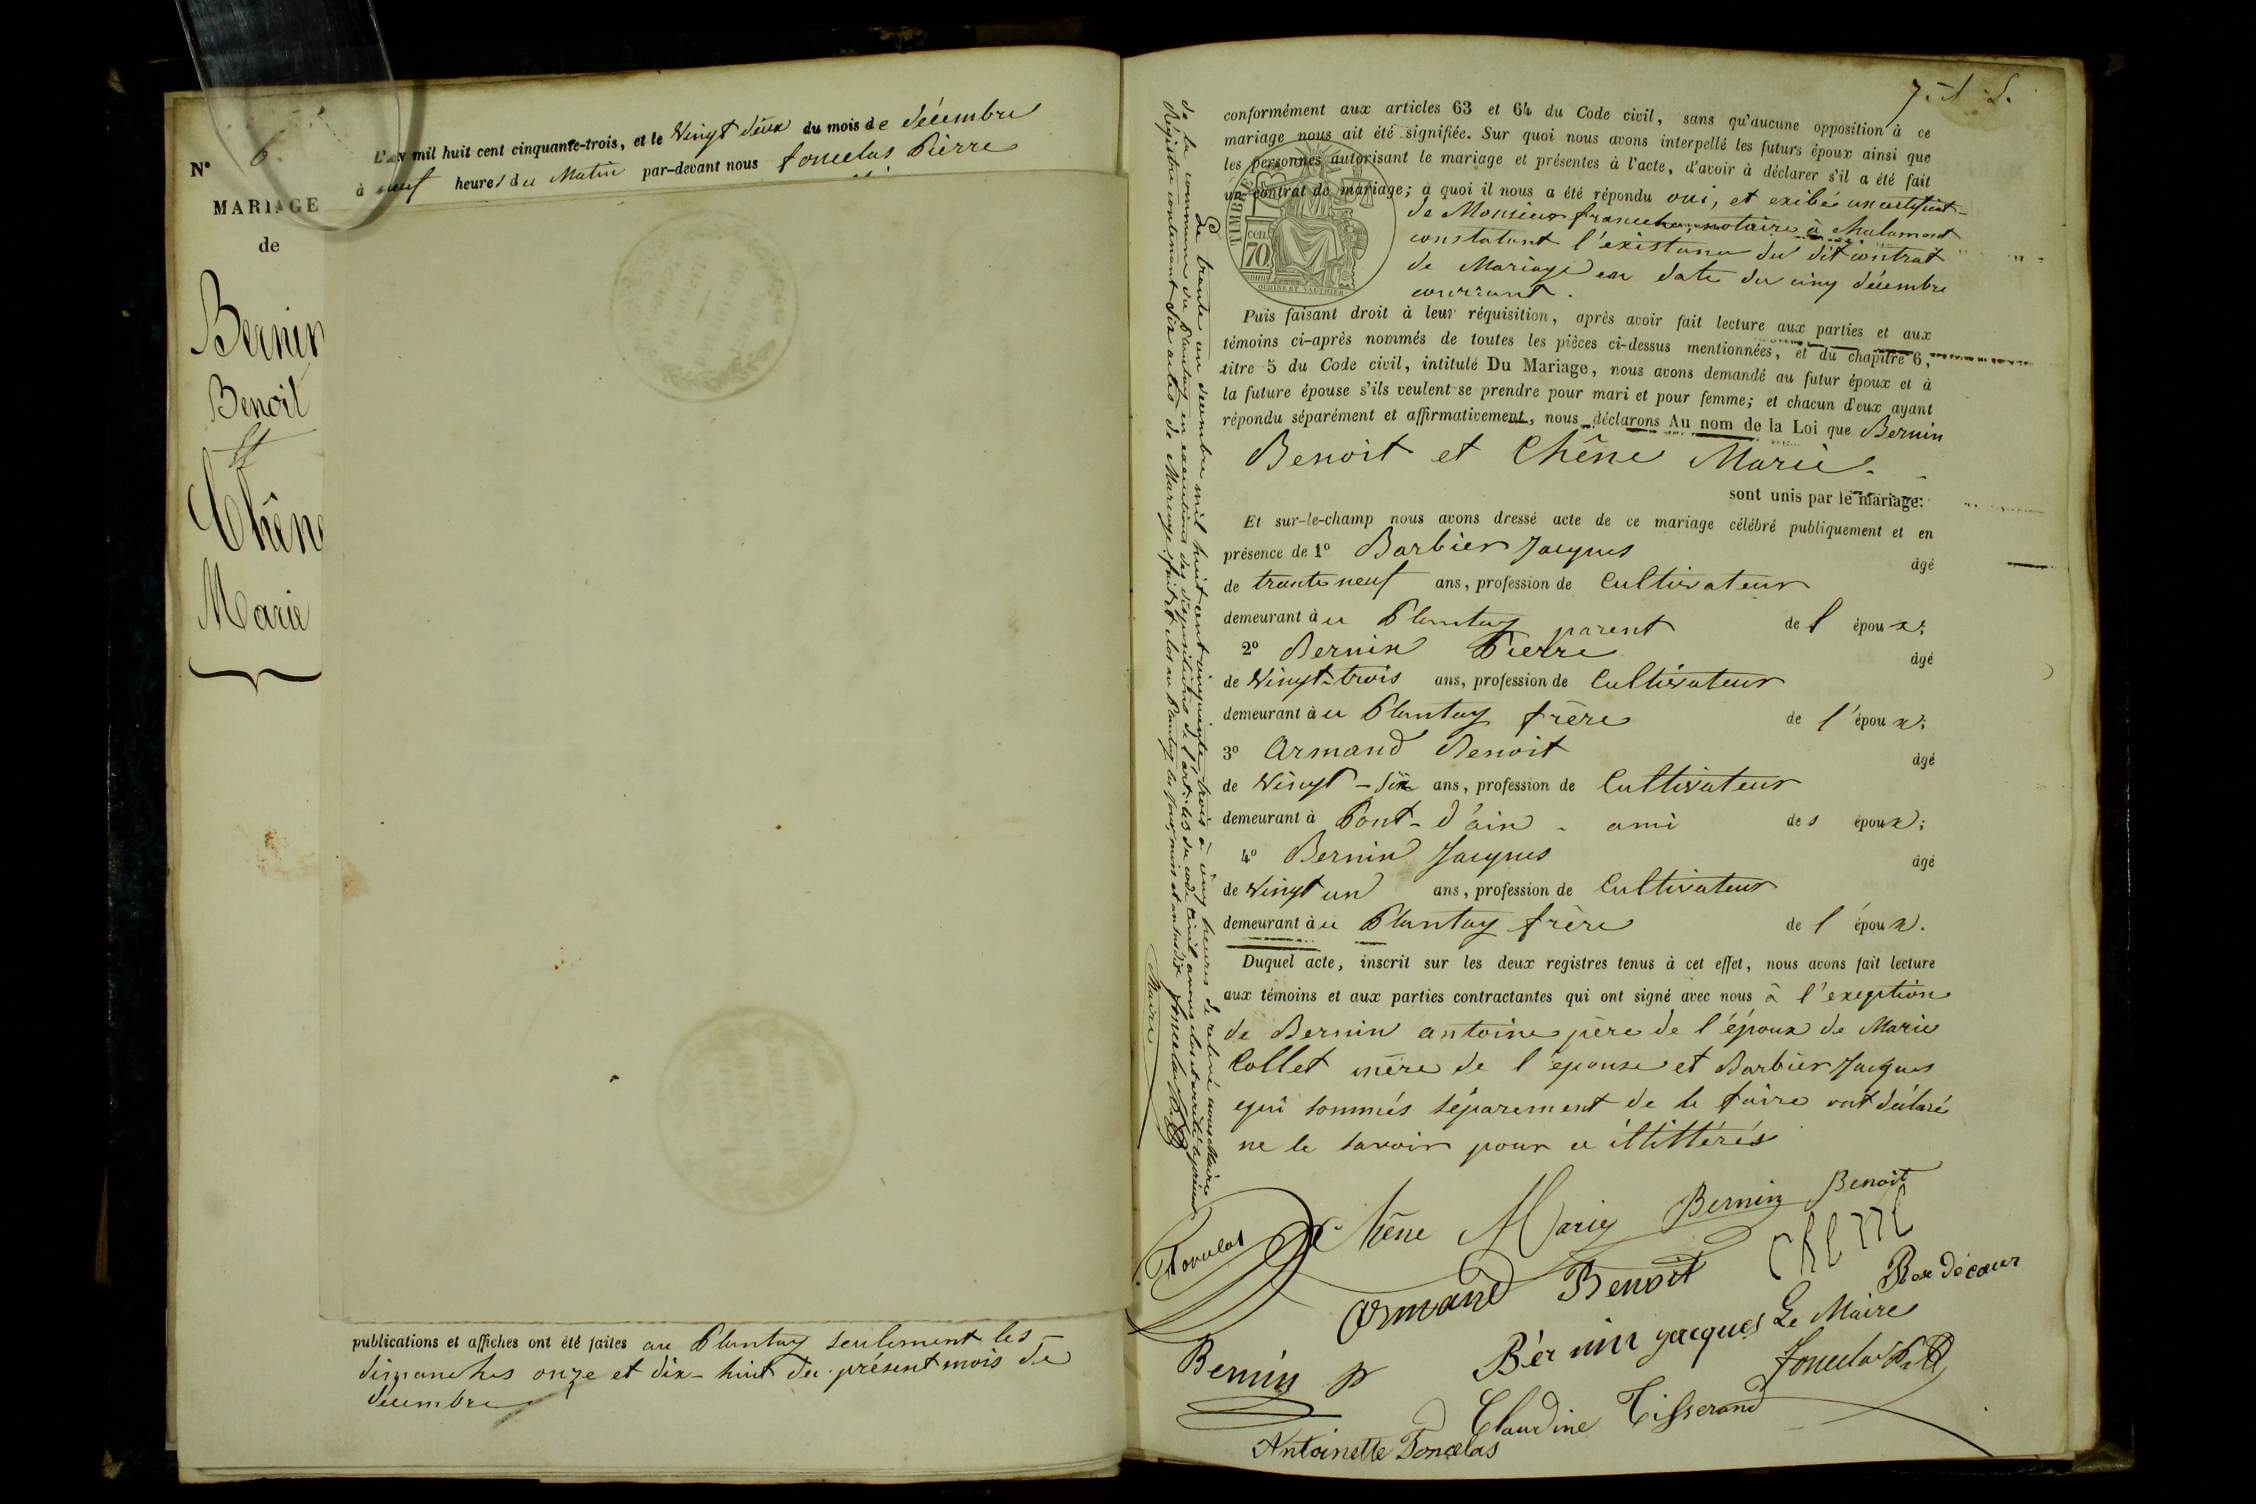 N° 6
MARIAGE
de
Bernin
Benoit
et
Chêne
Marie
L'an mil huit cent cinquante-trois, et le Vingt deux du mois de décembre
à neuf heures du Matin par-devant nous Foncelas Pierre
publications et affiches ont été faites au Plantay seulement les
dimanches onze et dix-huit du présent mois de
décembre
conformément aux articles 63 et 64 du Code civil, sans qu'aucune opposition à ce
mariage nous ait été signifiée. Sur quoi nous avons interpellé les futurs époux ainsi que
les personnes autorisant le mariage et présentes à l'acte, d'avoir à déclarer s'il a été fait
un contrat de mariage; à quoi il nous a été répondu oui, et exibé un certificat
de Monsieur notaire à Chalamont
constatant l'existance du dit contrat
de Mariage en date du cinq décembre
courrant.
TIMBRE
cen. 70
Puis faisant droit à leur réquisition, après avoir fait lecture aux parties et aux
témoins ci-après nommés de toutes les pièces ci-dessus mentionnées, et du chapitre 6,
titre 5 du Code civil, intitulé Du Mariage, nous avons demandé au futur époux et à
la future épouse s'ils veulent se prendre pour mari et pour femme; et chacun d'eux ayant
répondu séparément et affirmativement, nous déclarons Au nom de la Loi que Bernin
Benoit et Chêne Marie.
sont unis par le mariage:
Et sur-le-champ nous avons dressé acte de ce mariage célébré publiquement et en
présence de 1° Barbier Jacques âgé
de trante neuf ans, profession de Cultivateur
demeurant à u Plantay parent de l époux;
2° Bernin Pierre âgé
de Vingt-trois ans, profession de Cultivateur
demeurant à u Plantay frère de l'époux;
3° Armand Benoit âgé
de Vingt-six ans, profession de Cultivateur
demeurant à Pont-d'ain - ami des époux;
4° Bernin Jacques âgé
de Vingt un ans, profession de Cultivateur
demeurant à u Plantay frère de l époux.
Duquel acte, inscrit sur les deux registres tenus à cet effet, nous avons fait lecture
aux témoins et aux parties contractantes qui ont signé avec nous à l'exeption
de Bernin antoine père de l'époux de Marie
Collet mère de l'epouse et Barbier Jacques
qui sommés séparement de le faire ont déclaré
ne le savoir pour e illittérés
Le trante un décembre mil huit cent cinquante trois à cinq heures de relevé nous Maire
de la commune du Plantay en exécution des dispositions de l'article du code civil avons clos et arrêté le présent
Régistre contenant Six actes de Mariage. fait et clos au Plantay les jour, mois et an susdits Foncelas P.
Maire
Foncelas
Chêne Marie Bernin Benoit
Armand Benoit chene
Bordecour
Bernin P Bérnin jacques Le Maire
Foncelas P.
Claudine Tisserand
Antoinette Foncelas